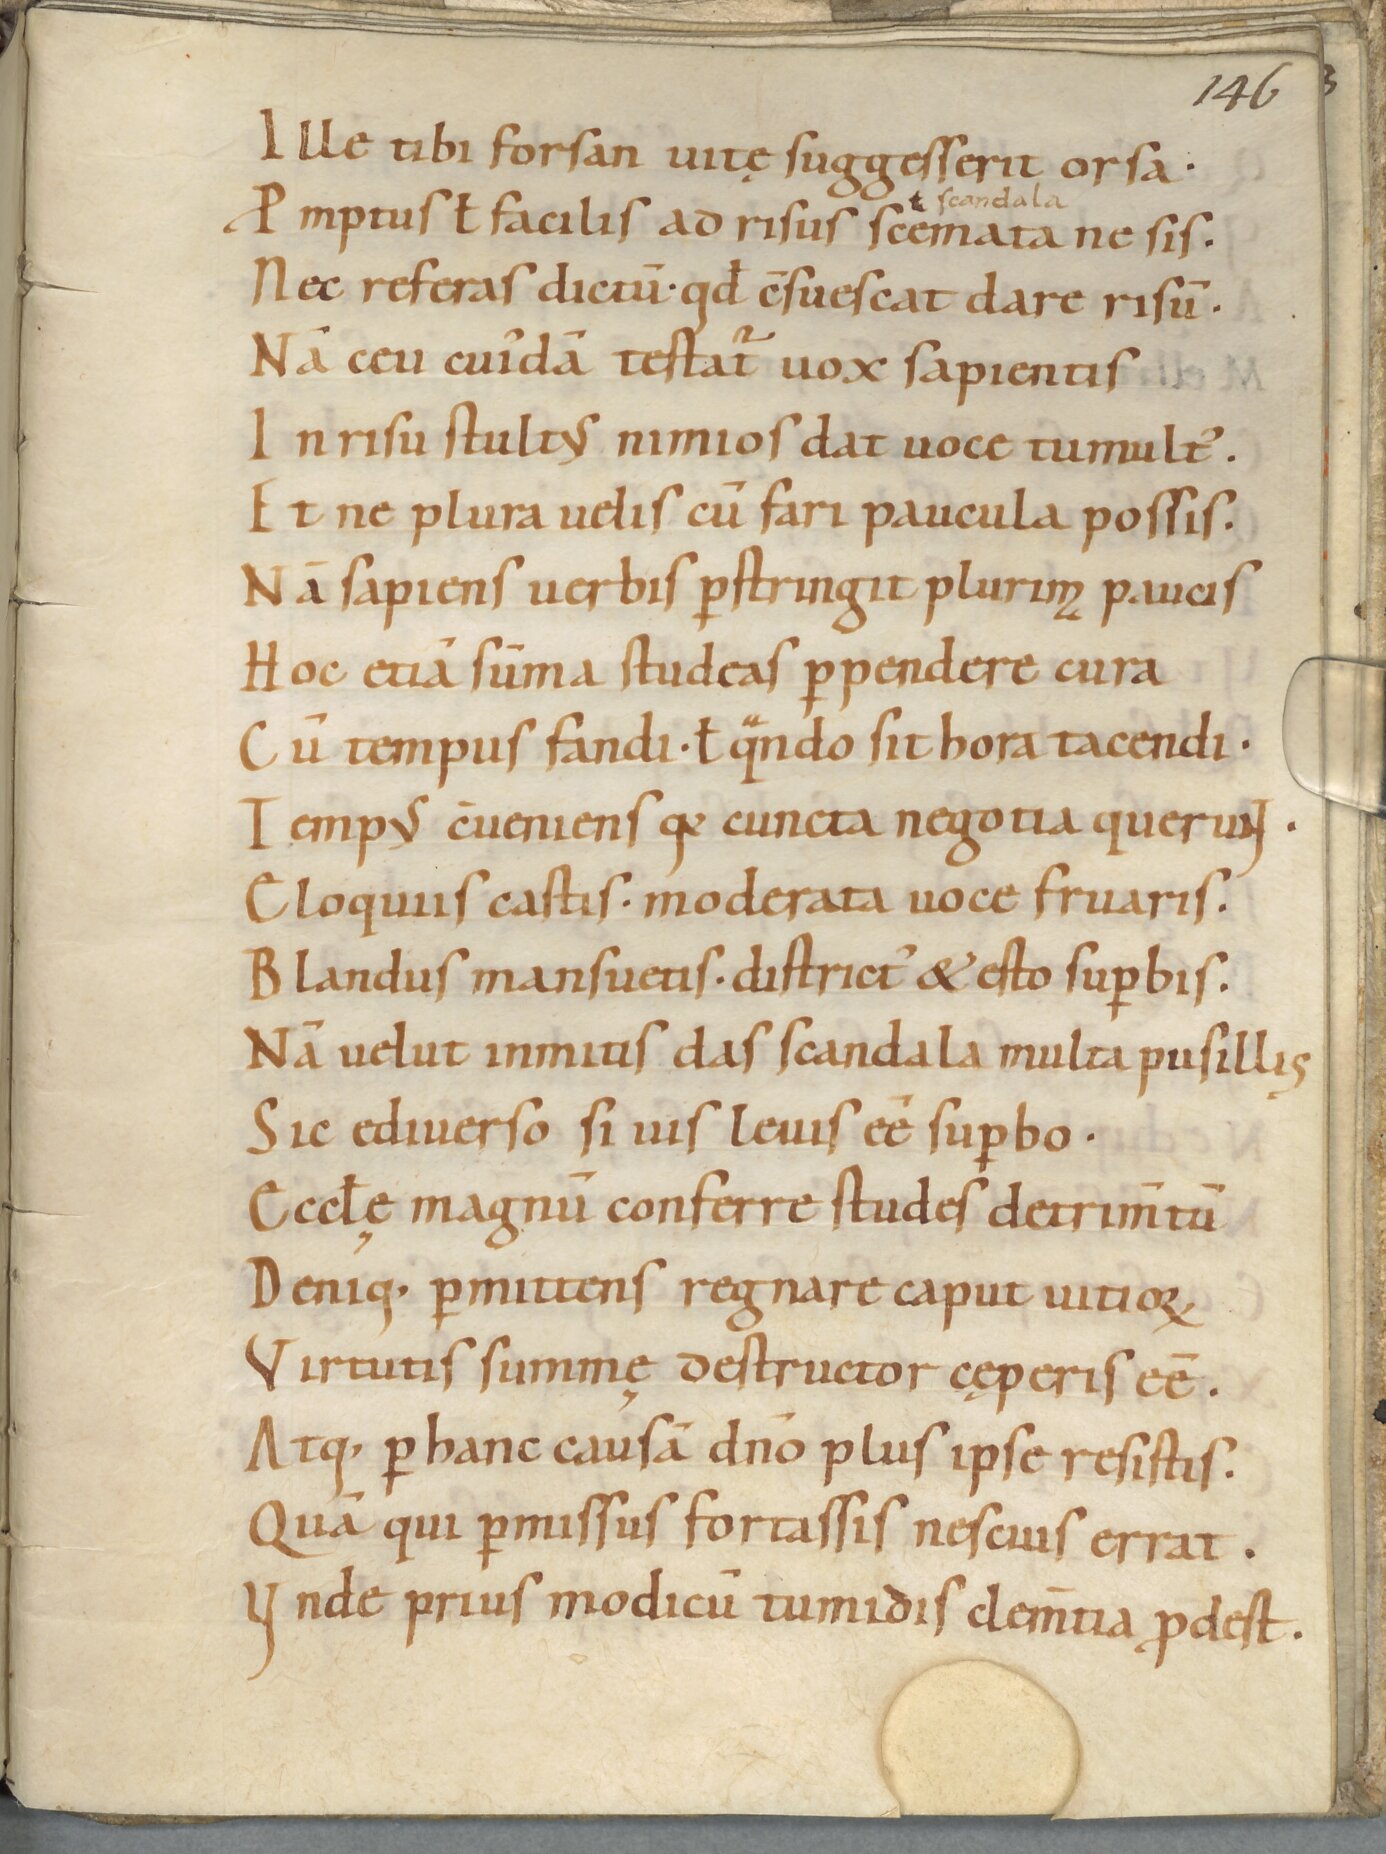 146
Ille tibi forsan uitę suggesserit orsa.
Pmptus ł facilis ad risus scemata ne sis.
ł scandala
Nec referas dictū· qđ c̄suescat dare risū.
Nā ceu cuidā testat᷑ uox sapientis
In risu stultꝰ nimios dat uoce tumultꝰ.
Et ne plura uelis cū fari paucula possis.
Nā sapiens uerbis ꝑstringit plurimą paucis
Hoc etiā sūma studeas ꝑpendere cura
Cū tempus fandi· ł qͣndo sit hora tacendi.
Tempꝰ c̄ueniens qꝫ cuncta negotia querunt.
Eloquiis castis· moderata uoce fruaris.
Blandus mansuetis· districtꝰ & esto suꝑbis.
Nā uelut inmitis das scandala multa pusillis
Sic ediuerso si uis leuis eē suꝑbo.
Eccłę magnū conferre studes detrim̄tū
Deniq· ꝑmittens regnare caput uitioꝝ
Virtutis summę destructor cęperis eē.
Atq· ꝑ hanc causā dn̄o plus ipse resistis.
Quā qui ꝑmissus fortassis nescius errat.
Vnde prius modicū tumidis clem̄tia ꝓdest.